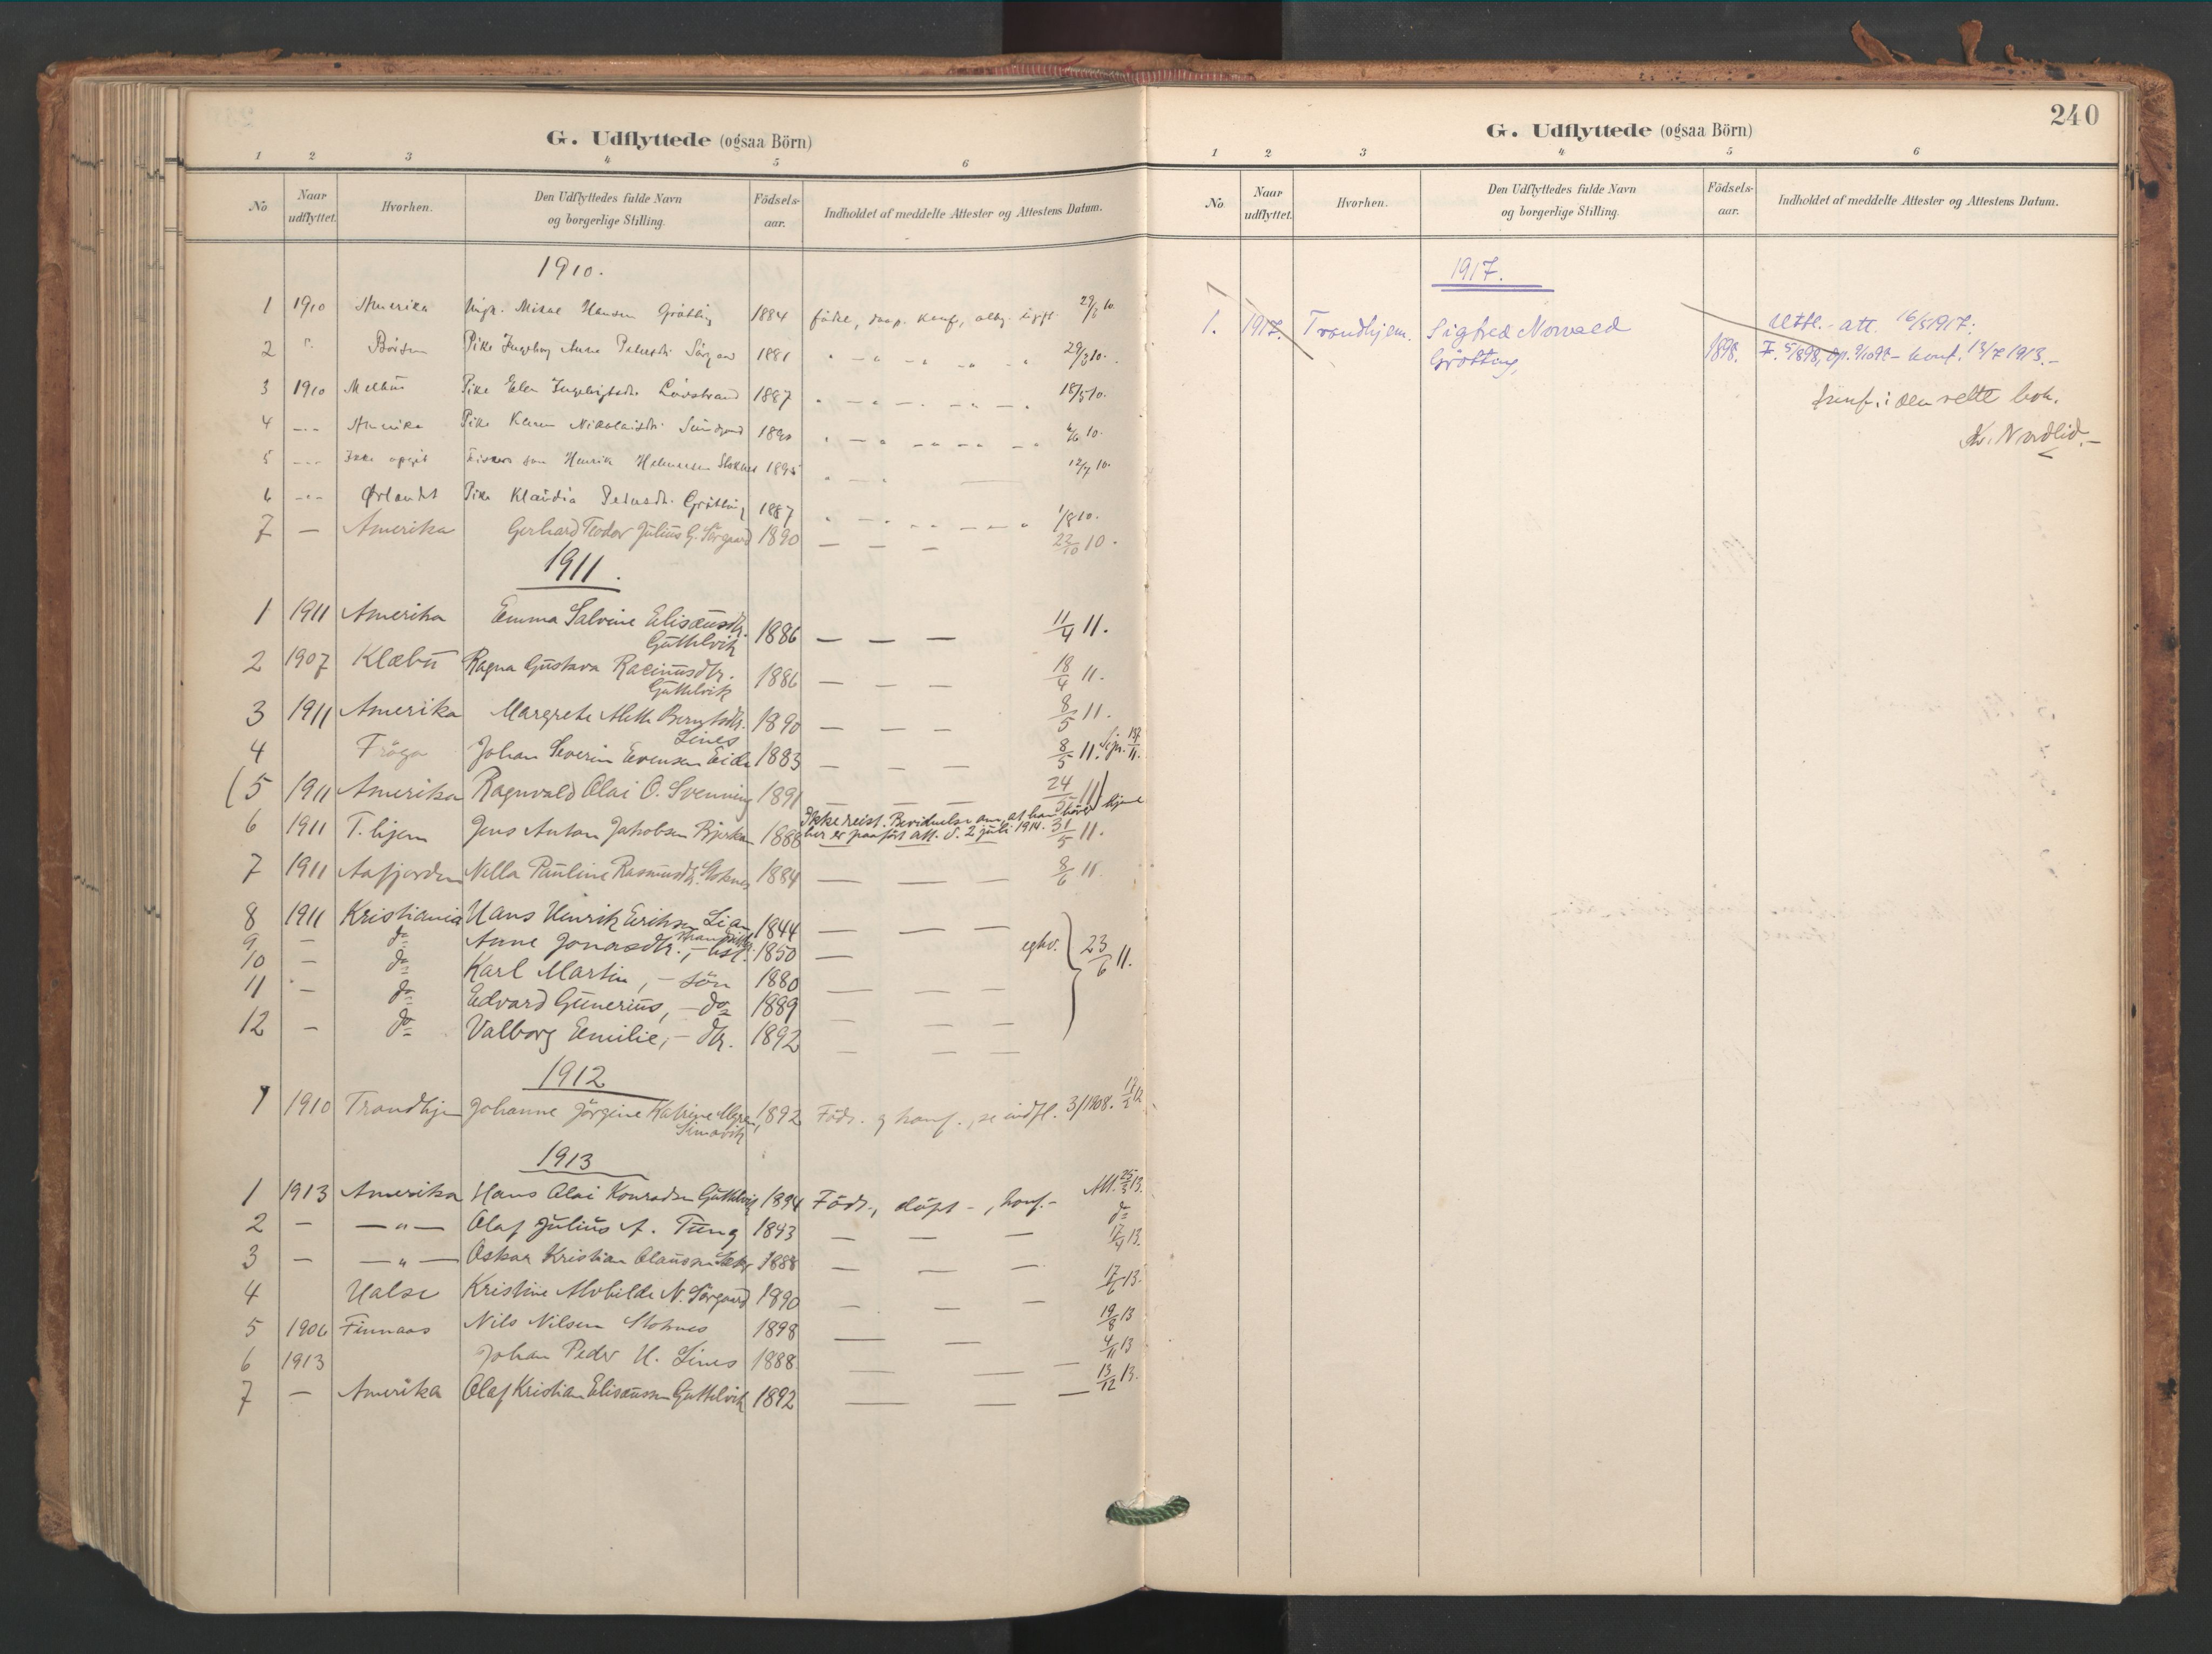 G. Udflyttede (ogsaa Börn)
1 2 3 4 5 6
No Naar udflyttet. Hvorhen. Den Udflyttedes fulde Navn og borgerlige Stilling. Födsels-aar. Indholdet af meddelte Attester og Attestens Datum.
1910.
1 1910 Amerika Mikal Hansen Gråtting 1884 föds, daap. konf, 29/3 10.
2 " Börsen Pike Ingeborg Anna Pedersdtr Sörgaard 1881 29/3 10.
3 1910 Melhus Pike Elen Ingebrigtsdtr Lövstrand 1887 18/5 10.
4 -"- Amerika Pike Karen Nikolaisdtr. 1890 6/6 10.
5 -"- Ikke opgit Henrik Stoknes 1895 12/7 10.
6 -"- Ørlandet Pike Klaudia Pedersdtr. Gråtting 1887 1/8 10.
7 — Amerika Gerhard Teodor Julius G. Sörgaard 1890 — — — 22/10 10.
1911.
1 1911 Amerika Emma Salvine Elisæusdtr. 1886 — — — 11/4 11.
Guttelvik
2 1907 Klæbu Ragna Gustava Racinusdtr. 1886 — — — 18/4 11.
Guttelvik
3 1911 Amerika Margrete Aleth Berntsdtr. 1890 — — — 8/5 11.
Lines
4 Fröya Johan Severin Evensen Eide 1883 — — — 8/5 11.
(5 1911 Amerika Ragnvald Olai O. Svenning 1891 — — — 24/5 11)
Ikke reist. Bevidnelse om, at han hörer hjemme
6 1911 T.hjem Jens Anton Jakobsen Bjerkan 1888 her er paaført att. d. 2 juli 1914. 31/5 11.
7 1911 Aafjorden Nella Pauline Rasmusdtr. Stoknes 1884 — — — 8/6 11.
8 1911 Kristiania Hans Henrik Eriksen Lian, 1844 — — —
9 — do Anne Jonasdtr., — hst. 1850 — egkv. 23/6 11.
10 — do Karl Martin, — sön 1880 — — —
11 — do Edvard Gunerius, — do 1889 — — —
12 — do Valborg Emilie, — dtr. 1892 — — —
1912
1 1910 Trondhjem Johanne Jörgine Katrine 1892 Föds. g konf., se indfl. 3/1908. 17/2 12
1913
1 1913 Amerika Hans Olai Konradsen Guttelvig 1894 Föds., döpt -, konf. - Att. 25/3 13.
2 — — " — Olaf Julius A. Tung 1893 — — — do
3 — — " — Oskar Kristian Olaussen 1888 — — — 17/4 13.
4 Halse Kristine Alvhilde N. Sörgaard 1890 — — — 17/6 13.
5 1906 Finnaas Nils Nilsen Stoknes 1898 — — 19/8 13
6 1913 Johan Peder H. Lines 1888 — — — 4/11 13
7 — Amerika Olaf Kristian Elisæussen Guttelvik 1892 — — — 13/12 13.
240
G. Udflyttede (ogsaa Börn)
1 2 3 4 5 6
No. Naar udflyttet. Hvorhen. Den Udflyttedes fulde Navn og borgerlige Stilling. Födsels-aar. Indholdet af meddelte Attester og Attestens Datum.
1917.
1. 1917. Trondhjem. Sigfred Norvald Utfl.- att. 16/5 1917:
Gråtting, 1898. F. 5/8 98, dp. 9/10 98 - konf. 13/7 1913.-
den rette bok.
Kr. Nordlid.-